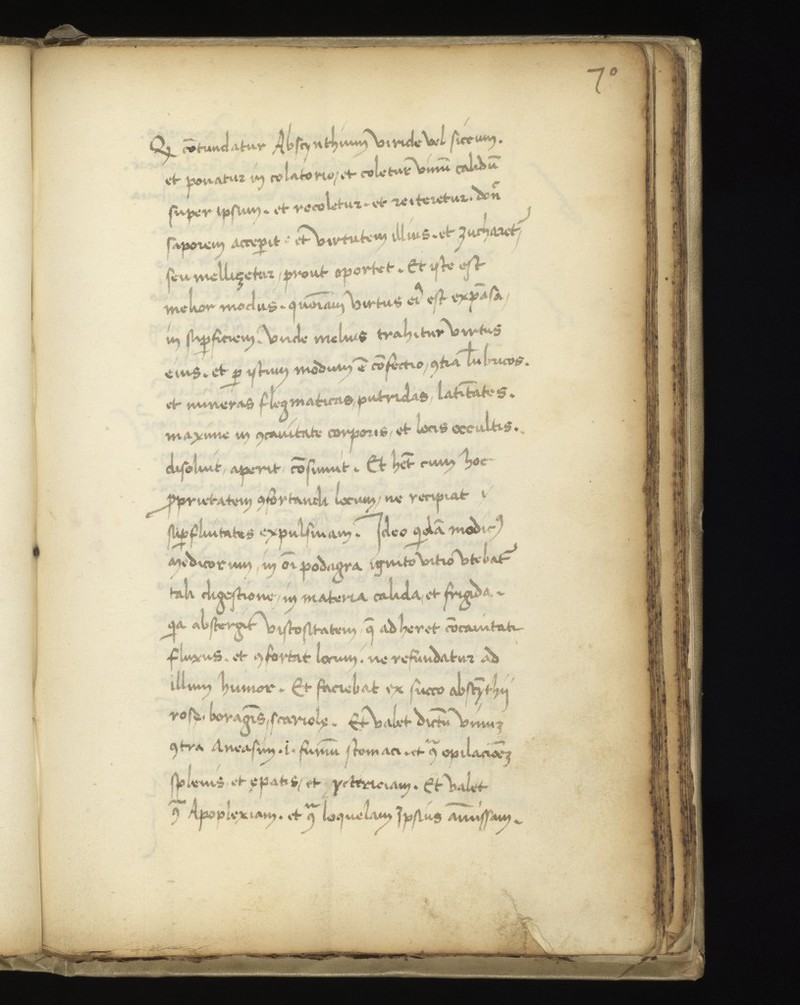 70
Q̃ cōtundatur Abscynthium viride vel siccum.
et ponatur in colatorio, et coletur vinū calidū
super ipsum. et recoletur. et reiteretur. donꝭ
saporem acceperit. et virtutem illius. et zucharetᷣ
seu mellizetur, prout oportet. Et iste est
melior modus. quoniam virtus eiꝰ est expāsa,
in suꝑficiem. Vnde melius trahitur virtus
eius. et ꝑ istum modum ē cōfectio, ꝯtra lūbricos.
et mineras flegmaticas, putridas, latitātes.
maxime in ꝯcauitate corporis, et locis occultis.
disoluit, aperit, cōsumit. Et hēt cum hoc
ꝓprietatem ꝯfortandi locum, ne recipiat
suꝑfluitates expulsiuam. Ideo qidā modicꝰ
medicorum, in oī podagra vtebatᷣ
tali digestione, in materia calida, et frigida.
qa abstergit viscositatem, q̄ adheret cōcauitati
fluxus. et ꝯfortat locum. ne refundatur ad
illum humor. Et faciebat ex succo abscȳthij
rosę. boragīs, scariolę. Et valet dictū vinuꝫ
ꝯtra .i. fumū stomaci. et ꝯᷓ opilacōeꝫ
splenis, et epatis, et yctericiam. Et valet
ꝯᷓ Apoplexiam. et ꝯᷓ loquelam ipsius amissam.